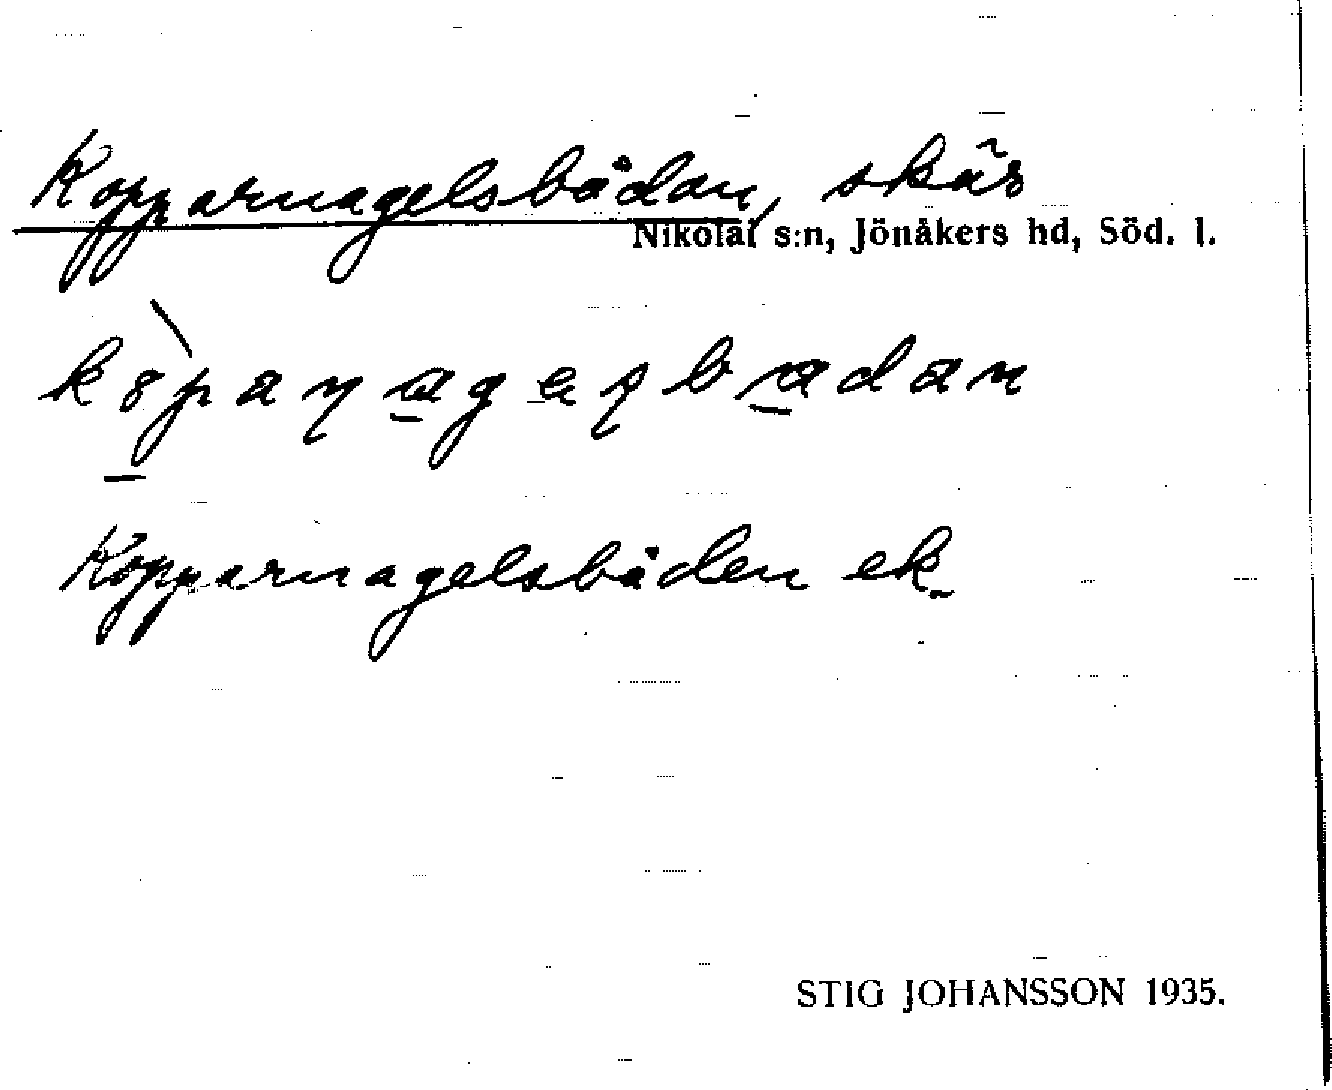 Kopparnagelsbådan, skär
Nikolai s:n, Jönåkers hd, Söd. l.
Kopparnagelsbåden ek.
STIG JOHANSSON 1935.